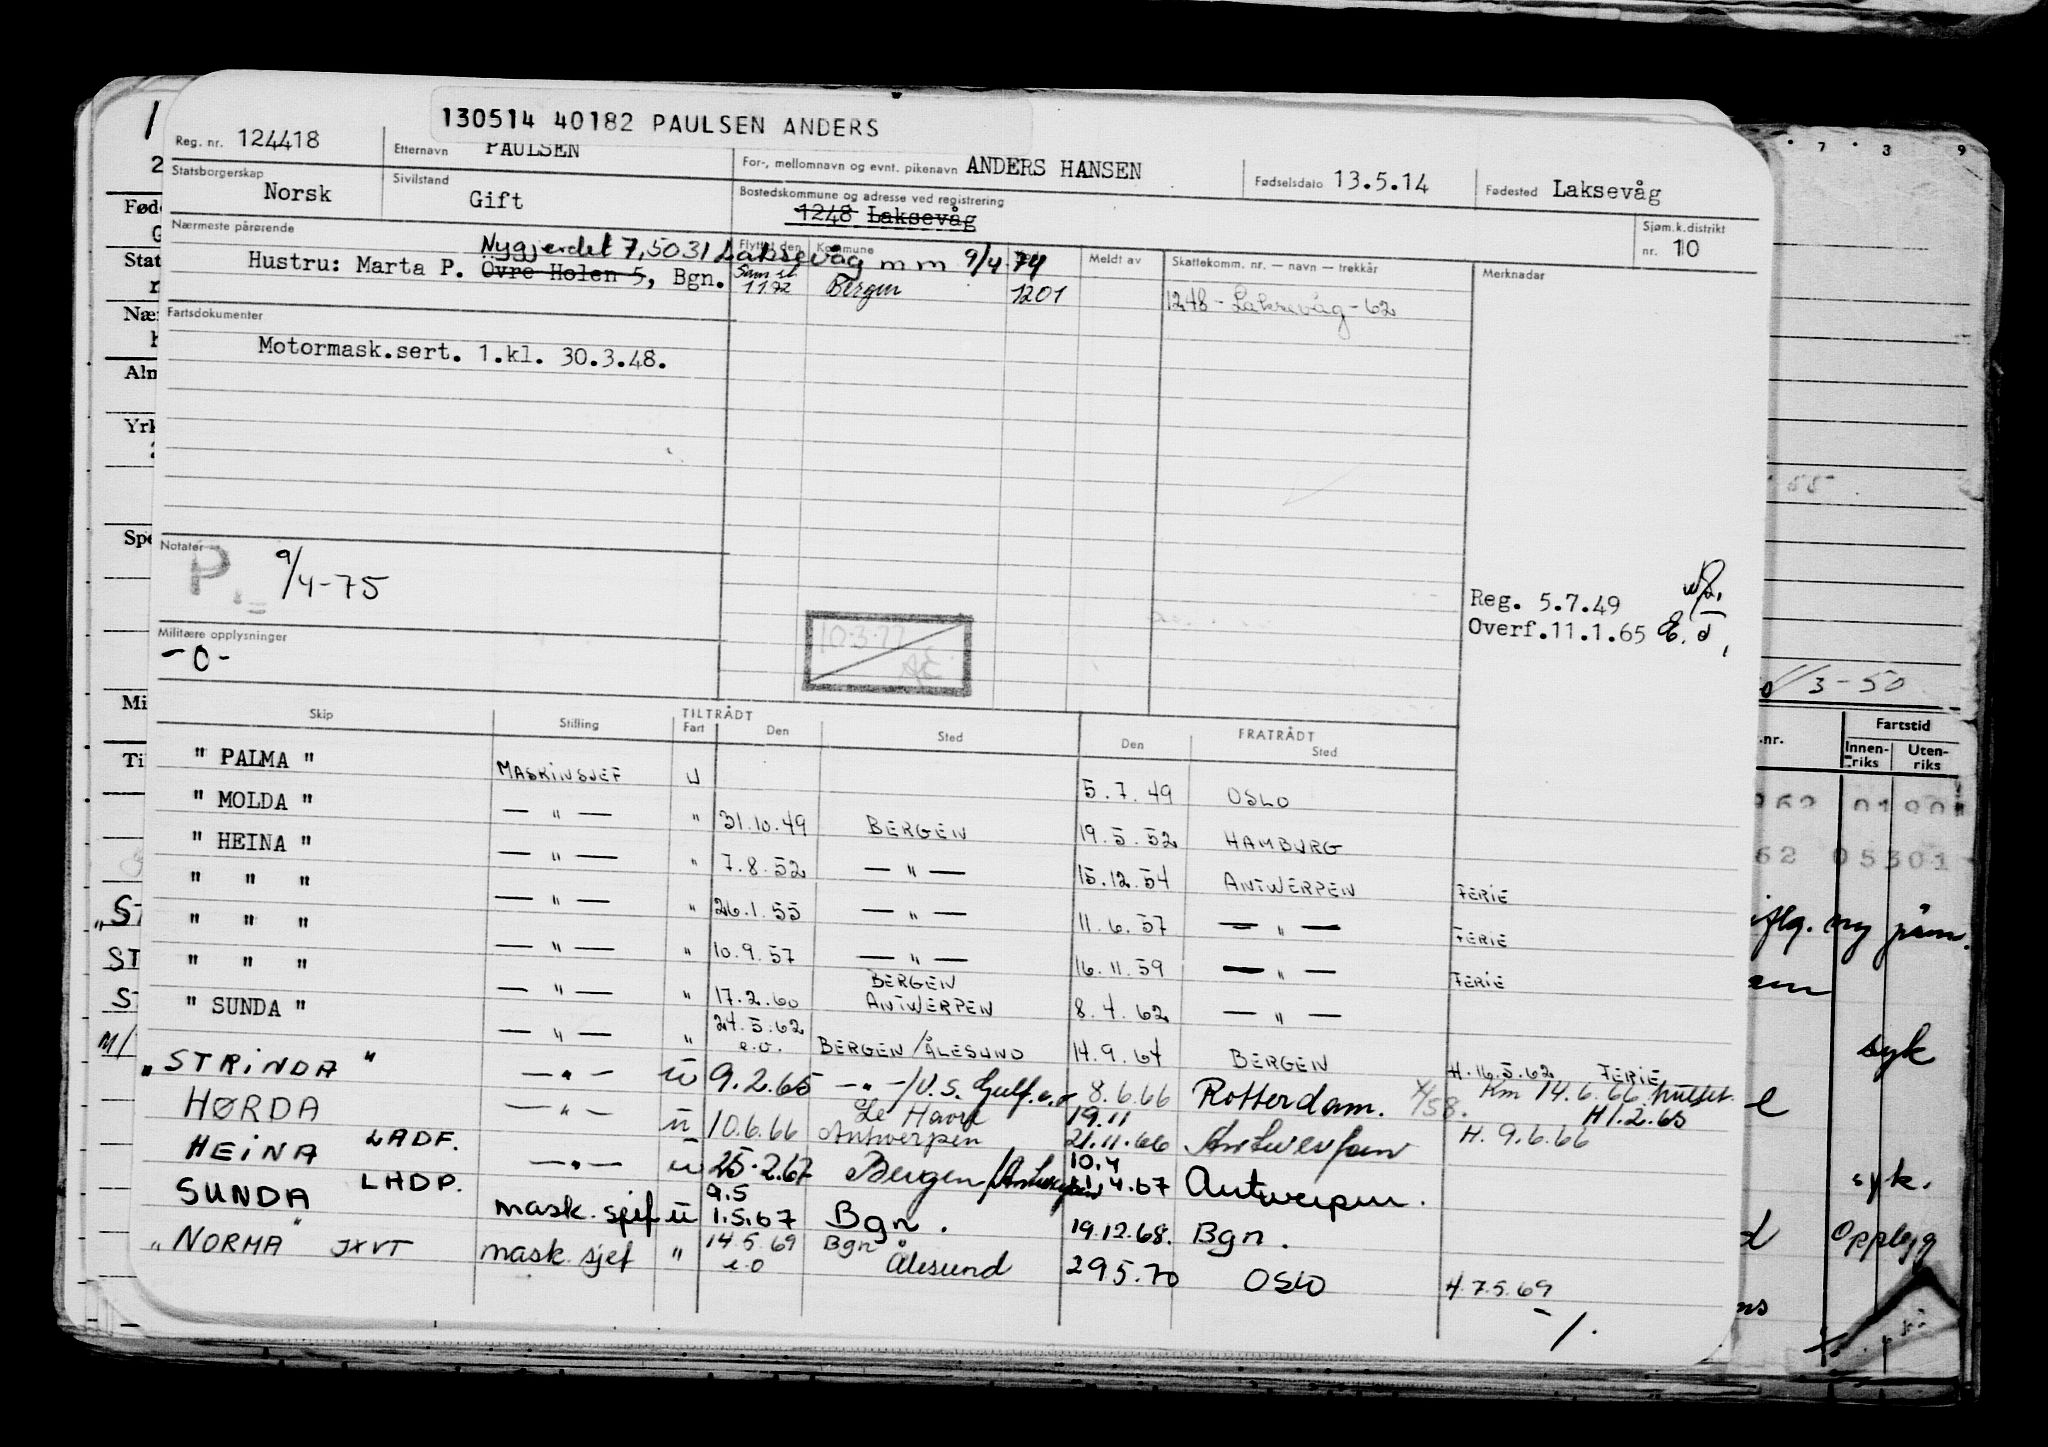 130514 40182 PAULSEN ANDERS
Reg. nr. 124418 Etternavn PAULSEN For-, mellomnavn og evnt. pikenavn ANDERS HANSEN Fødselsdato 13.5.14 Fødested Laksevåg
Statsborgerskap Norsk Sivilstand Gift Bostedskommune og adresse ved registrering 1248 Laksevåg Sjøm.k.distrikt nr. 10
Nærmeste pårørende Nygjerdet 7, 5031 Laksevåg m m 9/4-74
Flyttet den Kommune Meldt av Skattekomm. nr. — navn — trekkår Merknader
Hustru: Marta P. Övre Holen 5, Bgn. 1172 Bergen 1201 1248 - Laksevåg - 62
Fartsdokumenter
Motormask.sert. 1.kl. 30.3.48.
Notater P. 9/4-75
Reg. 5.7.49
Overf. 11.1.65
Militære opplysninger
-0-
10.3.77
Skip Stilling TILTRÅDT Fart Den Sted FRATRÅDT Den Sted
" PALMA " MASKINSJEF U 5.7.49 OSLO
" MOLDA " — " — " 31.10.49 BERGEN 19.5.52 HAMBURG
" HEINA " — " — " 7.8.52 — " — 15.12.54 ANTWERPEN FERIE
" " " — " — " 26.1.55 — " — 11.6.57 — " — FERIE
" " " — " — " 10.9.57 — " — 16.11.59 — " — FERIE
" " " — " — " 17.2.60 BERGEN ANTWERPEN 8.4.62 — " —
" SUNDA " — " — " 24.5.62 e.o. BERGEN/ÅLESUND 14.9.64 BERGEN H.16.5.62 FERIE
"STRINDA" — " — u 9.2.65 — " — /U.S. Gulf e.o 8.6.66 Rotterdam. Km 14.6.66 H 1.2.65
HØRDA — " — u 10.6.66 Le Havre Antwerpen 19.11 21.11.66 Antwerpen H. 9.6.66
HEINA LADF. — " — u 25.2.67 Bergen/Antwerpen 10.4 11.4.67 Antwerpen.
SUNDA LHDP. mask. sjef u 9.5 1.5.67 Bgn. 19.12.68. Bgn.
"NORMA" JXVT mask. sjef " 14.5.69 e.o Bgn Ålesund 29.5.70 OSLO H. 7.5.69
-/.
3-50
.nr. Fartstid
Innenriks Utenriks
syk
syk.
Opplegg